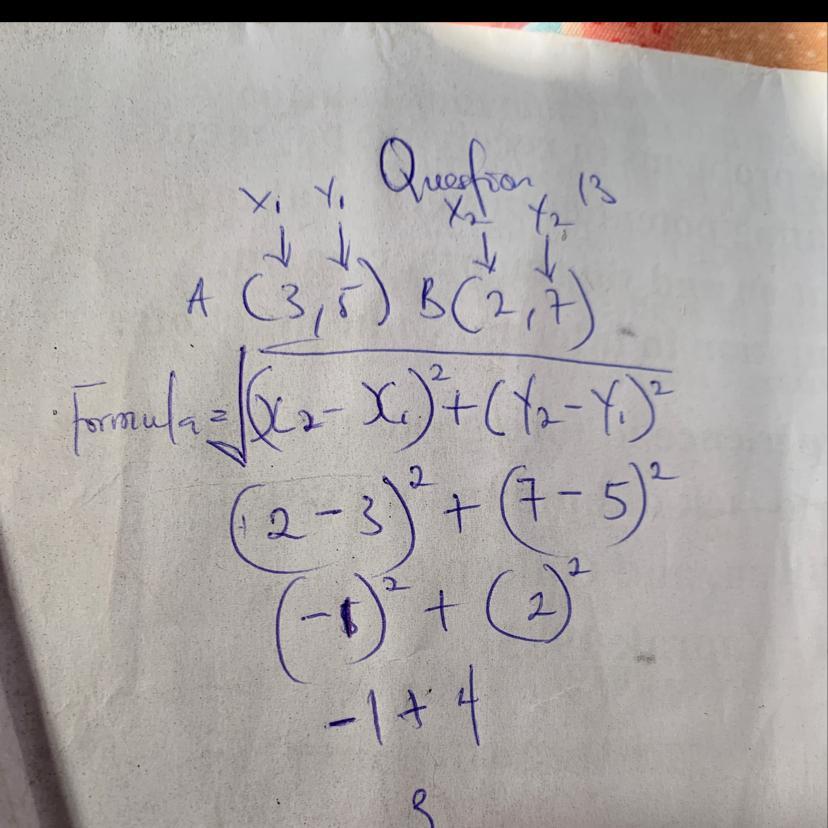 Question 13
X₁ Y₁ X₂ Y₂
A (3,5) B(2,7)
Formula = √(X₂ - X₁)² + (Y₂ - Y₁)²
(2 - 3)² + (7 - 5)²
(-1)² + (2)²
-1 + 4